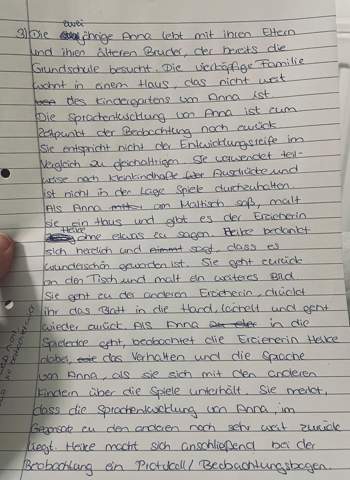 zwei
3) Die jährige Anna lebt mit ihren Eltern
und ihren Älteren Bruder, der bereits die
Grundschule besucht. Die vierköpfige Familie
wohnt in einem Haus, das nicht weit
des Kindergartens von Anna ist
Die Sprachentwicklung von Anna ist zum
Zeitpunkt der Beobachtung noch zurück
Sie entspricht nicht der Entwicklungsreife im
Vergleich zu gleichaltrigen. Sie verwendet teil-
weise noch kleinkindhafte Ausdrücke und
ist nicht in der Lage Spiele durchzuhalten.
Als Anna am Maltisch saß, malt
sie ein Haus und gibt es der Erzieherin
Heike ohne etwas zu sagen. Heike bedankt
sich herzlich und sagt, dass es
wunderschön geworden ist. Sie geht zurück
an den Tisch und malt ein weiteres Bild
Sie geht zu der anderen Erzieherin, drückt
ihr das Blatt in die Hand, lächelt und geht
wieder zurück. Als Anna in die
Spielecke geht, beobachtet die Erzieherin Heike
dabei, das Verhalten und die Sprache
von Anna, als sie sich mit den anderen
Kindern über die Spiele unterhält. Sie merkt,
dass die Sprachentwicklung von Anna, im
Gegensatz zu den anderen noch sehr weit zurück
liegt. Heike macht sich anschließend bei der
Beobachtung ein Protokoll/Beobachtungsbogen.